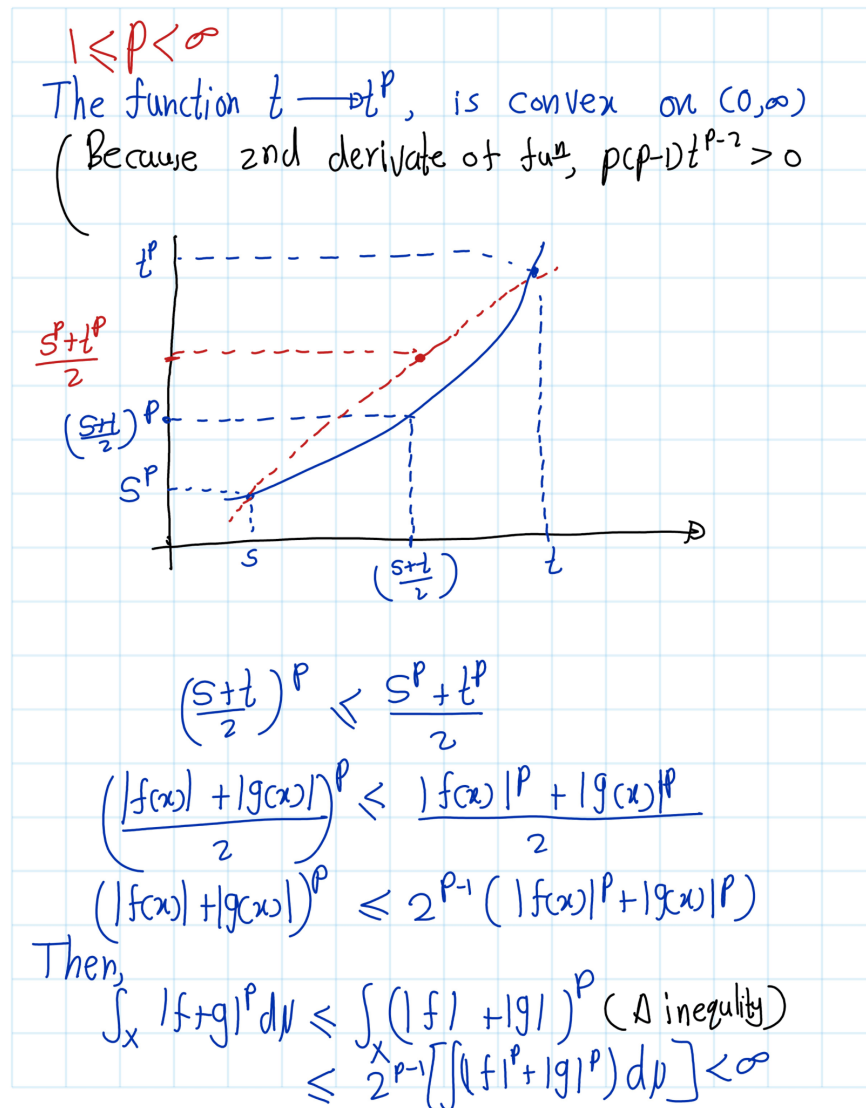 1 ≤ p < ∞
The function t → t^p, is convex on (0,∞)
(Because 2nd derivate of fun^n, p(p-1)t^{p-2} > 0
t^p
(s^p + t^p)/2
((s+t)/2)^p
s^p
s
((s+t)/2)
t
((s+t)/2)^p ≤ (s^p + t^p)/2
((|f(x)| + |g(x)|)/2)^p ≤ (|f(x)|^p + |g(x)|^p)/2
(|f(x)| + |g(x)|)^p ≤ 2^{p-1} (|f(x)|^p + |g(x)|^p)
Then,
∫_X |f+g|^p dμ ≤ ∫_X (|f| + |g|)^p (Δ inequlity)
≤ 2^{p-1} [∫(|f|^p + |g|^p) dμ] < ∞